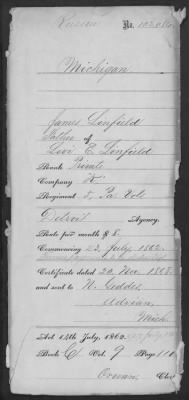 No. 102,0
Michigan
James Linfield
Father of
Levi E. Linfield
Rank Private
Company K
Regiment 5, Pa Vols
Detroit Agency.
Rate per month $ 8.
Commencing 23, July, 1862.
Certificate dated 20, Nov. 1868.
and sent to N. Geddes,
Adrian,
Mich
Act 14th July, 1862.
Book C Vol. 9 Page 111
Clerk